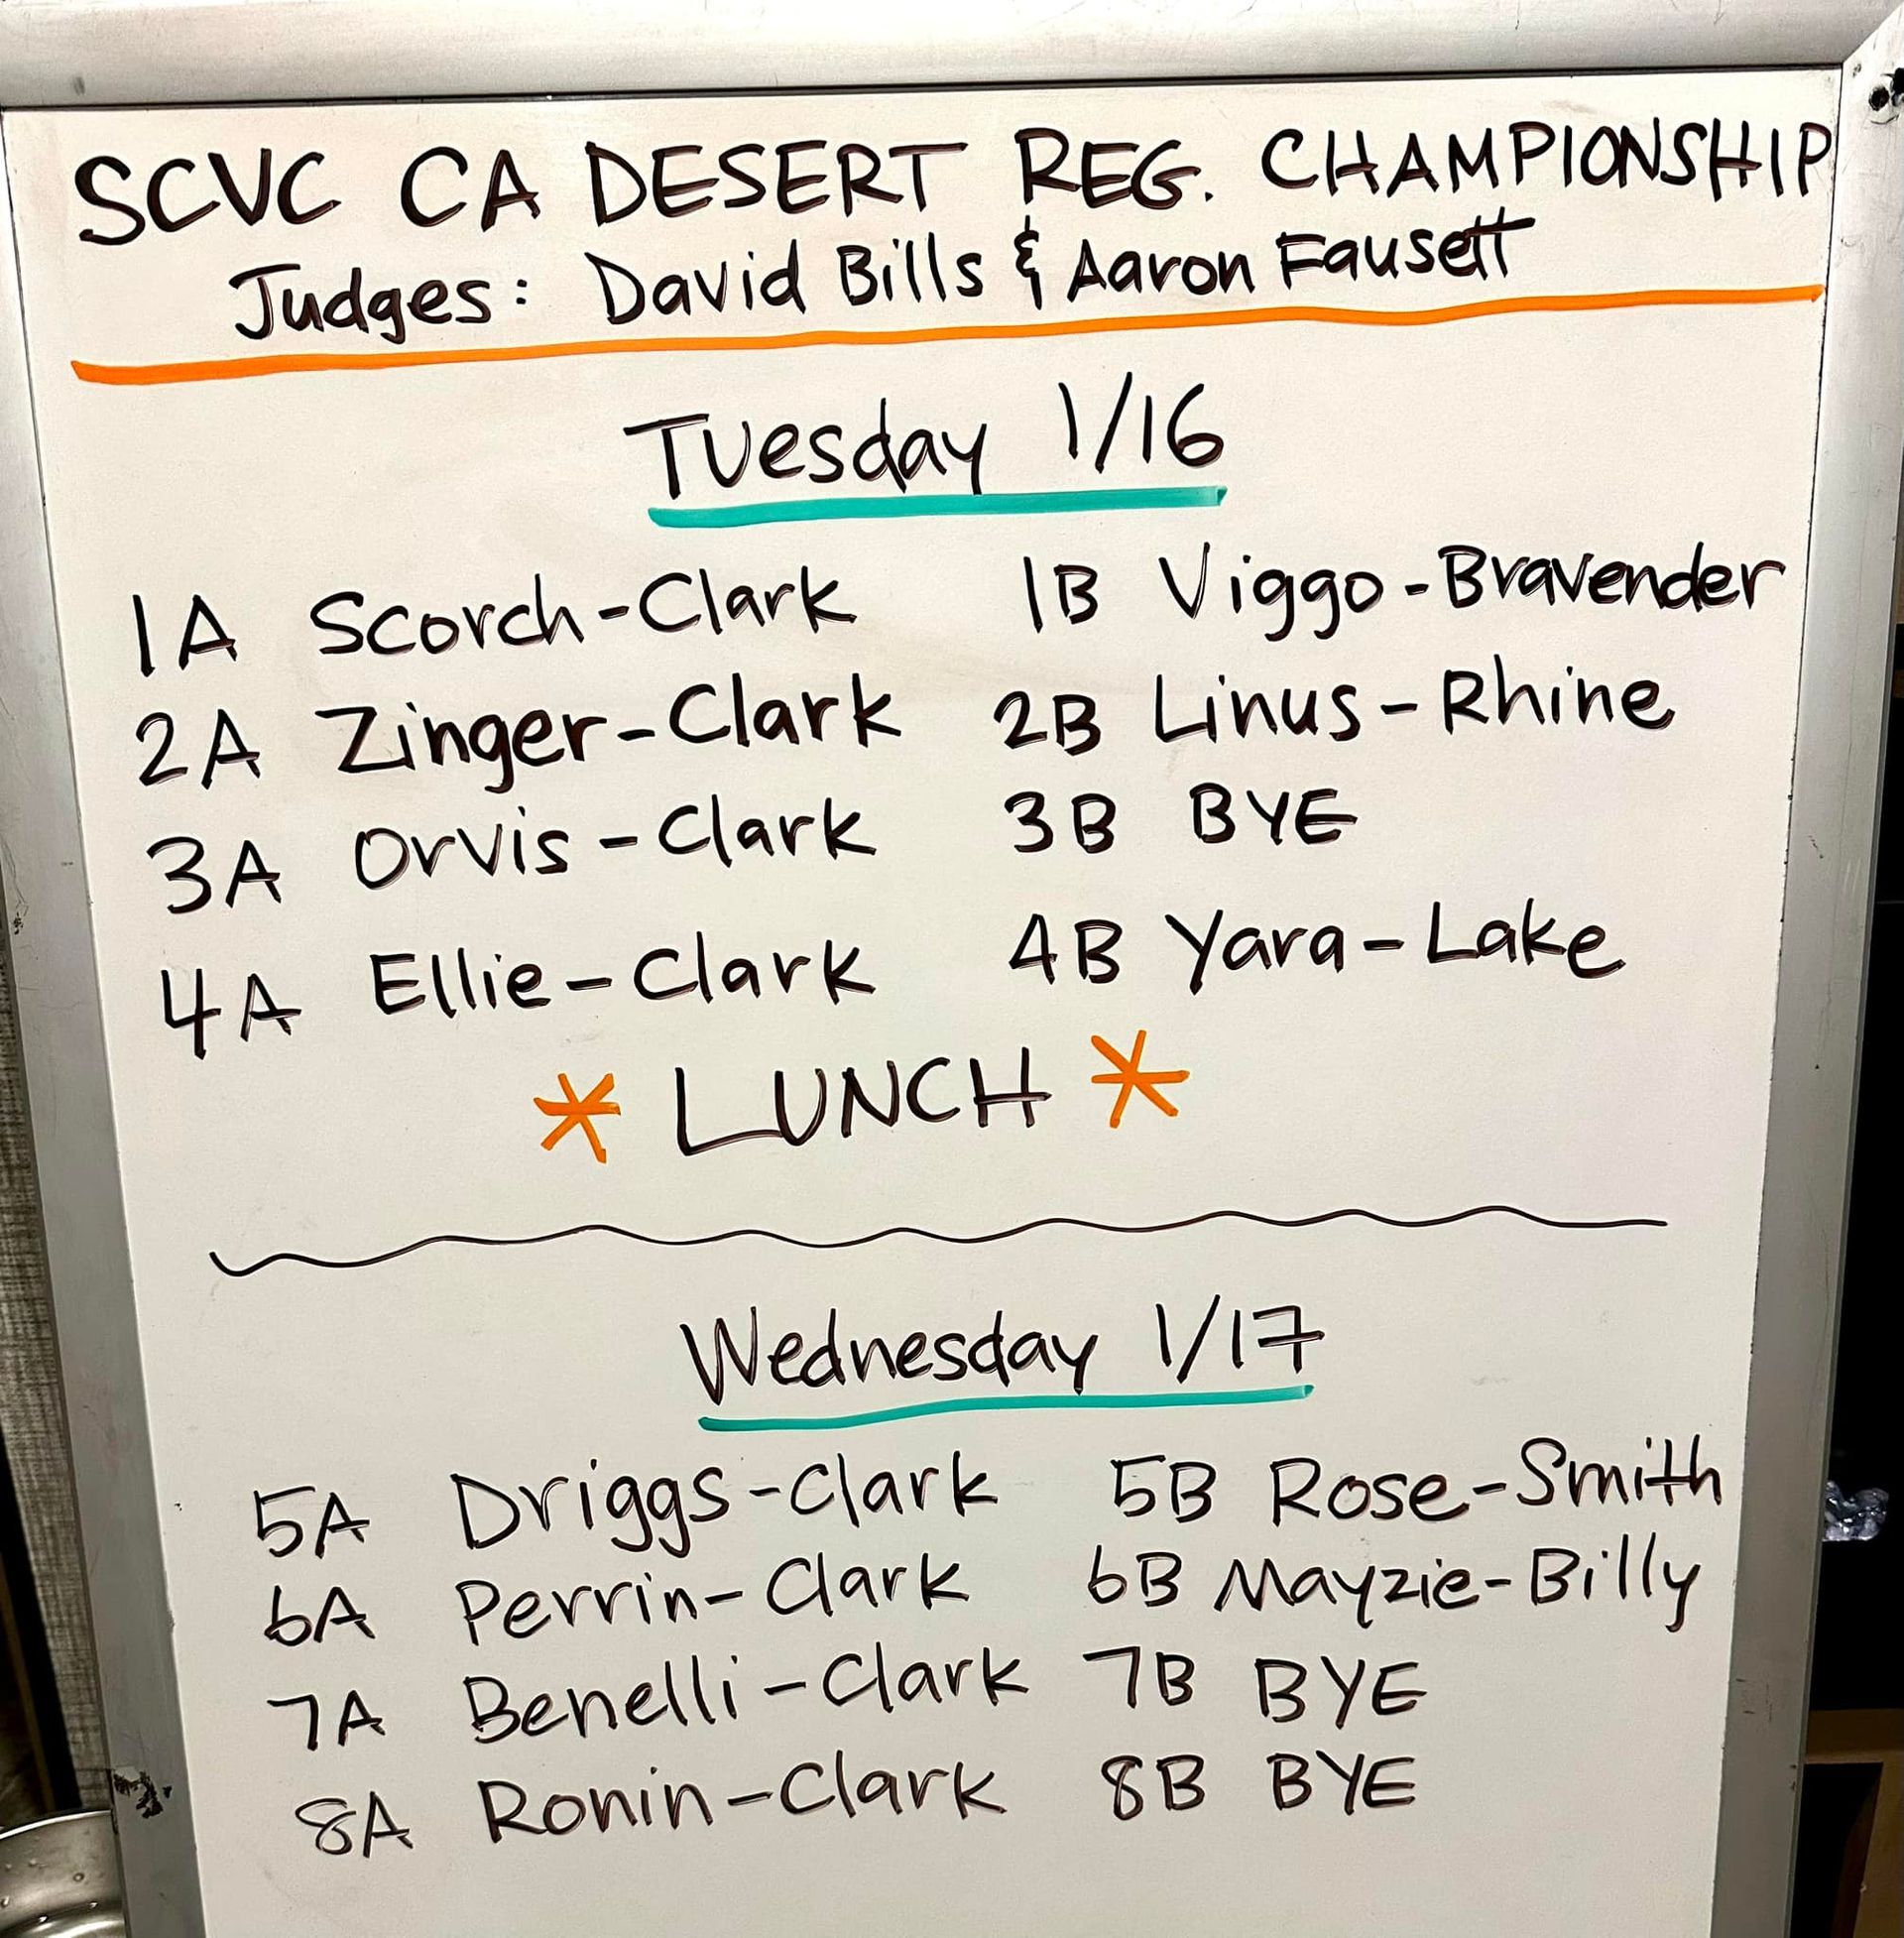 SCVC CA DESERT REG. CHAMPIONSHIP
Judges: David Bills & Aaron Fausett
Tuesday 1/16
1A Scorch-Clark 1B Viggo-Bravender
2A Zinger-Clark 2B Linus-Rhine
3A Orvis-Clark 3B BYE
4A Ellie-Clark 4B Yara-Lake
* LUNCH *
Wednesday 1/17
5A Driggs-Clark 5B Rose-Smith
6A Perrin-Clark 6B Mayzie-Billy
7A Benelli-Clark 7B BYE
8A Ronin-Clark 8B BYE